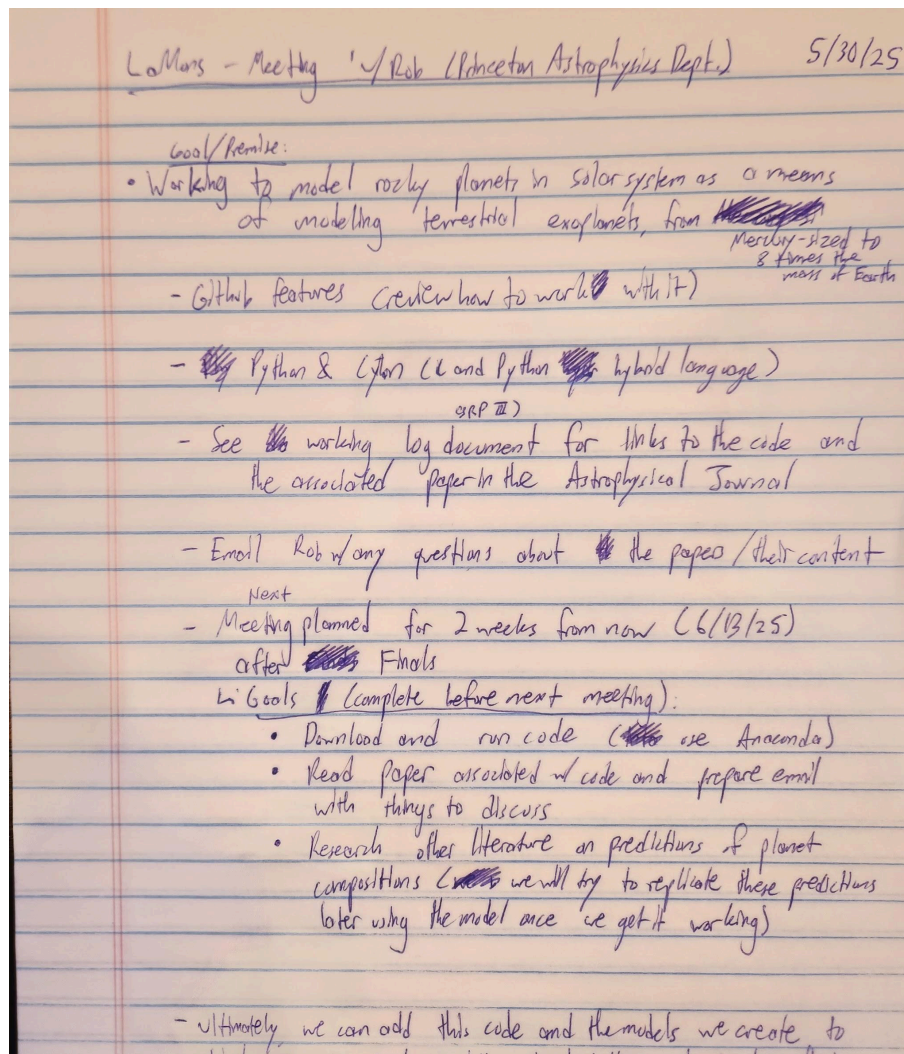 LaMans - Meeting w/ Rob (Princeton Astrophysics Dept.) 5/30/25
Goal/Premise:
• Working to model rocky planets in solar system as a means
of modeling terrestrial exoplanets, from
Mercury-sized to
8 times the
mass of Earth
- Github features (review how to work with it)
- Python & Cyton (C and Python hybrid language)
(SRP III)
- See working log document for links to the code and
the associated paper in the Astrophysical Journal
- Email Rob w/ any questions about the papers/their content
Next
- Meeting planned for 2 weeks from now (6/13/25)
after Finals
Goals (complete before next meeting):
• Download and run code (use Anaconda)
• Read paper associated w/ code and prepare email
with things to discuss
• Research other literature on predictions of planet
compositions (we will try to replicate these predictions
later using the model once we get it working)
- Ultimately, we can add this code and the models we create, to